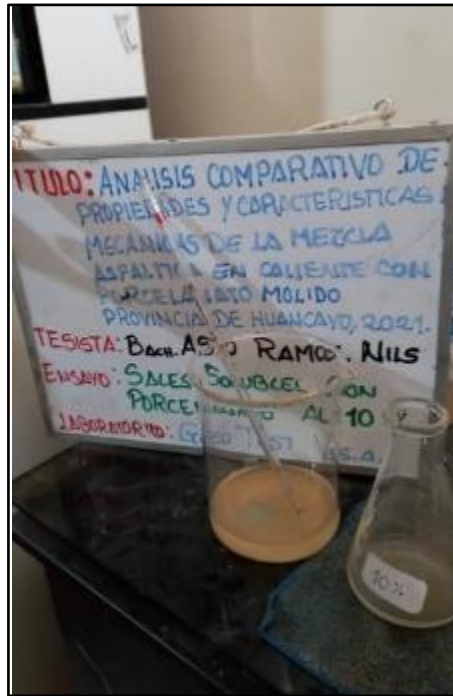 TITULO: ANALISIS COMPARATIVO DE
PROPIEDADES Y CARACTERISTICAS
MECANICAS DE LA MEZCLA
ASFALTICA EN CALIENTE CON
PORCELANATO MOLIDO
PROVINCIA DE HUANCAYO, 2021.
TESISTA: BACH. RAMOS, NILS
ENSAYO: SALES SOLUBLES CON
PORCELANATO AL 10
LABORATORIO: TEST S.A.
10%